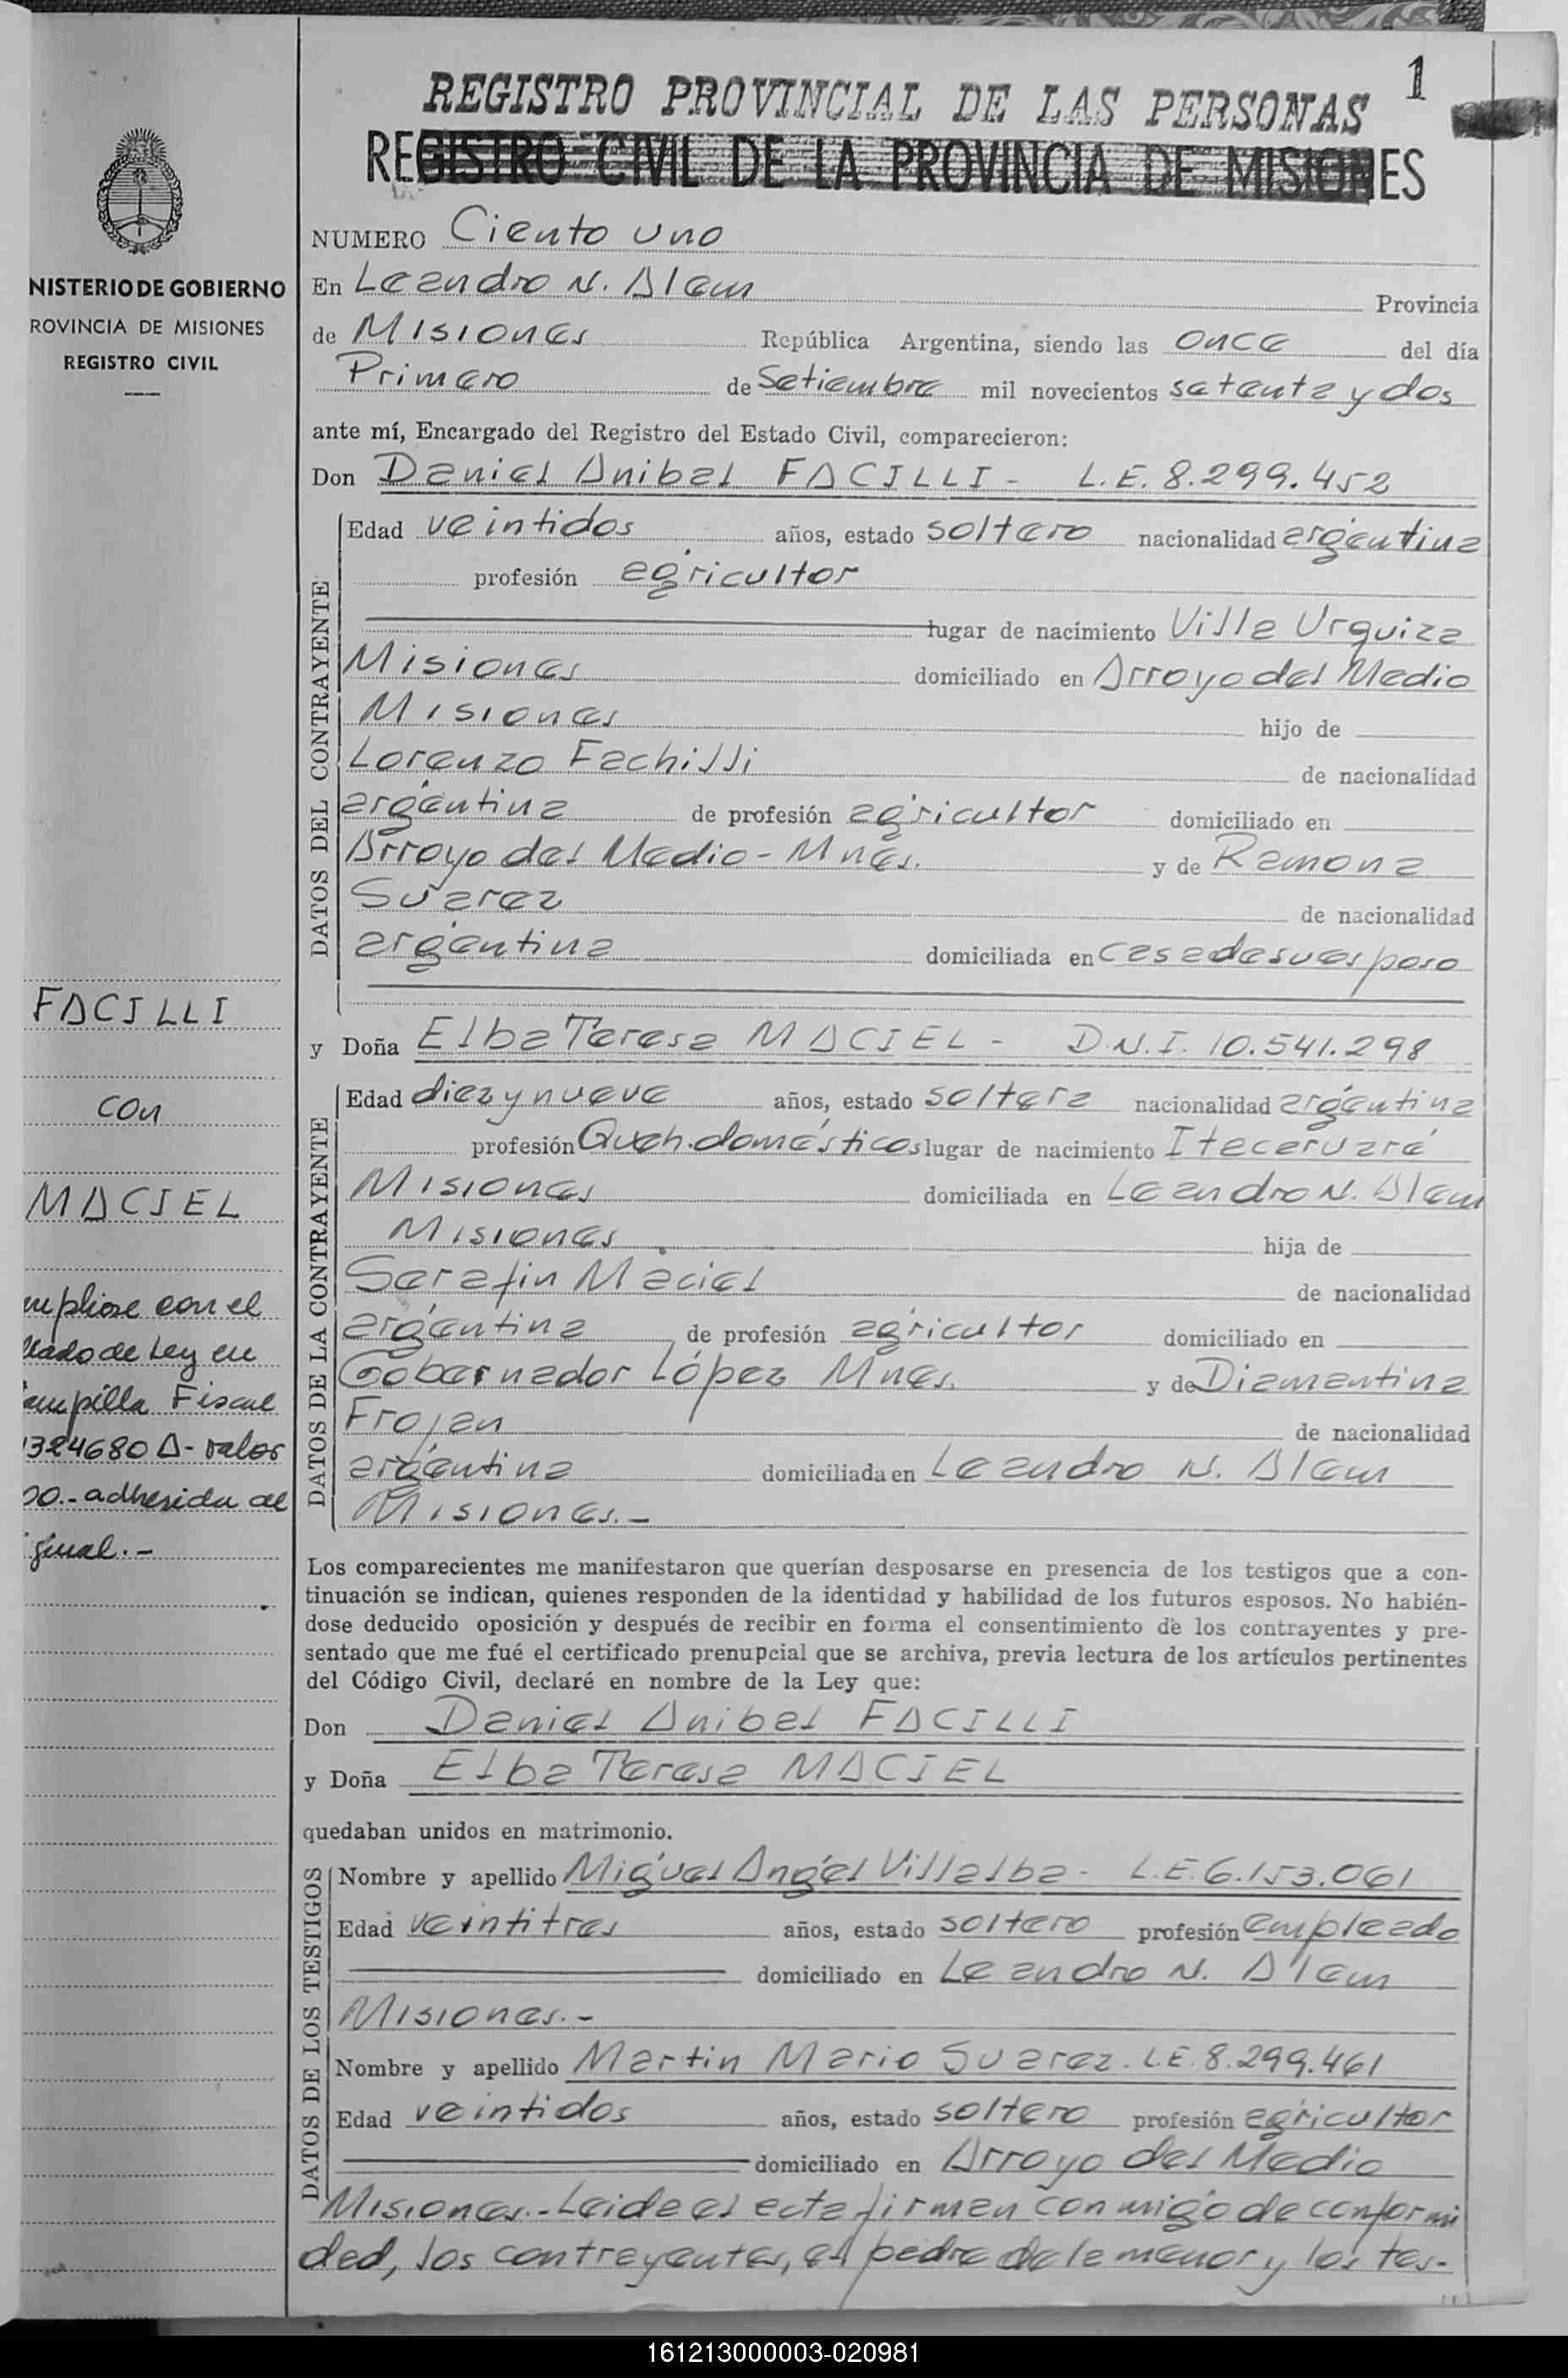 1
REGISTRO PROVINCIAL DE LAS PERSONAS
REGISTRO CIVIL DE LA PROVINCIA DE MISIONES
NISTERIO DE GOBIERNO
ROVINCIA DE MISIONES
REGISTRO CIVIL
NUMERO Ciento uno
En Leandro N. Alem Provincia
de Misiones República Argentina, siendo las once del día
Primero de Setiembre mil novecientos setenta y dos
ante mí, Encargado del Registro del Estado Civil, comparecieron:
Don Daniel Anibal FACILLI - L.E. 8.299.452
DATOS DEL CONTRAYENTE
Edad veintidos años, estado soltero nacionalidad argentina
profesión agricultor
lugar de nacimiento Villa Urquiza
Misiones domiciliado en Arroyo del Medio
Misiones hijo de
Lorenzo Fachilli de nacionalidad
argentina de profesión agricultor domiciliado en
Arroyo del Medio - Mnes. y de Ramona
Suarez de nacionalidad
argentina domiciliada en casa de su esposo
FACILLI
con
MACIEL
mpliose con el
llado de Ley en
ampilla Fiscal
324680 A- valor
00.- adherida al
ginal.-
y Doña Elba Teresa MACIEL - D.N.I. 10.541.298
DATOS DE LA CONTRAYENTE
Edad diez y nueve años, estado soltera nacionalidad argentina
profesión Queh. domésticos lugar de nacimiento Itacaruaré
Misiones domiciliada en Leandro N. Alem
Misiones hija de
Serafin Maciel de nacionalidad
argentina de profesión agricultor domiciliado en
Gobernador López Mnes. y de Diamantina
Frojan de nacionalidad
argentina domiciliada en Leandro N. Alem
Misiones.-
Los comparecientes me manifestaron que querían desposarse en presencia de los testigos que a con-
tinuación se indican, quienes responden de la identidad y habilidad de los futuros esposos. No habién-
dose deducido oposición y después de recibir en forma el consentimiento de los contrayentes y pre-
sentado que me fué el certificado prenupcial que se archiva, previa lectura de los artículos pertinentes
del Código Civil, declaré en nombre de la Ley que:
Don Daniel Anibal FACILLI
y Doña Elba Teresa MACIEL
quedaban unidos en matrimonio.
DATOS DE LOS TESTIGOS
Nombre y apellido Miguel Angel Villalba - L.E. 6.153.061
Edad veintitres años, estado soltero profesión empleado
domiciliado en Leandro N. Alem
Misiones.-
Nombre y apellido Martin Mario Suarez. L.E. 8.299.461
Edad veintidos años, estado soltero profesión agricultor
domiciliado en Arroyo del Medio
Misiones.- Leida el acta firman conmigo de conformi
dad, los contrayentes, el padre de la menor y los tes-
161213000003-020981